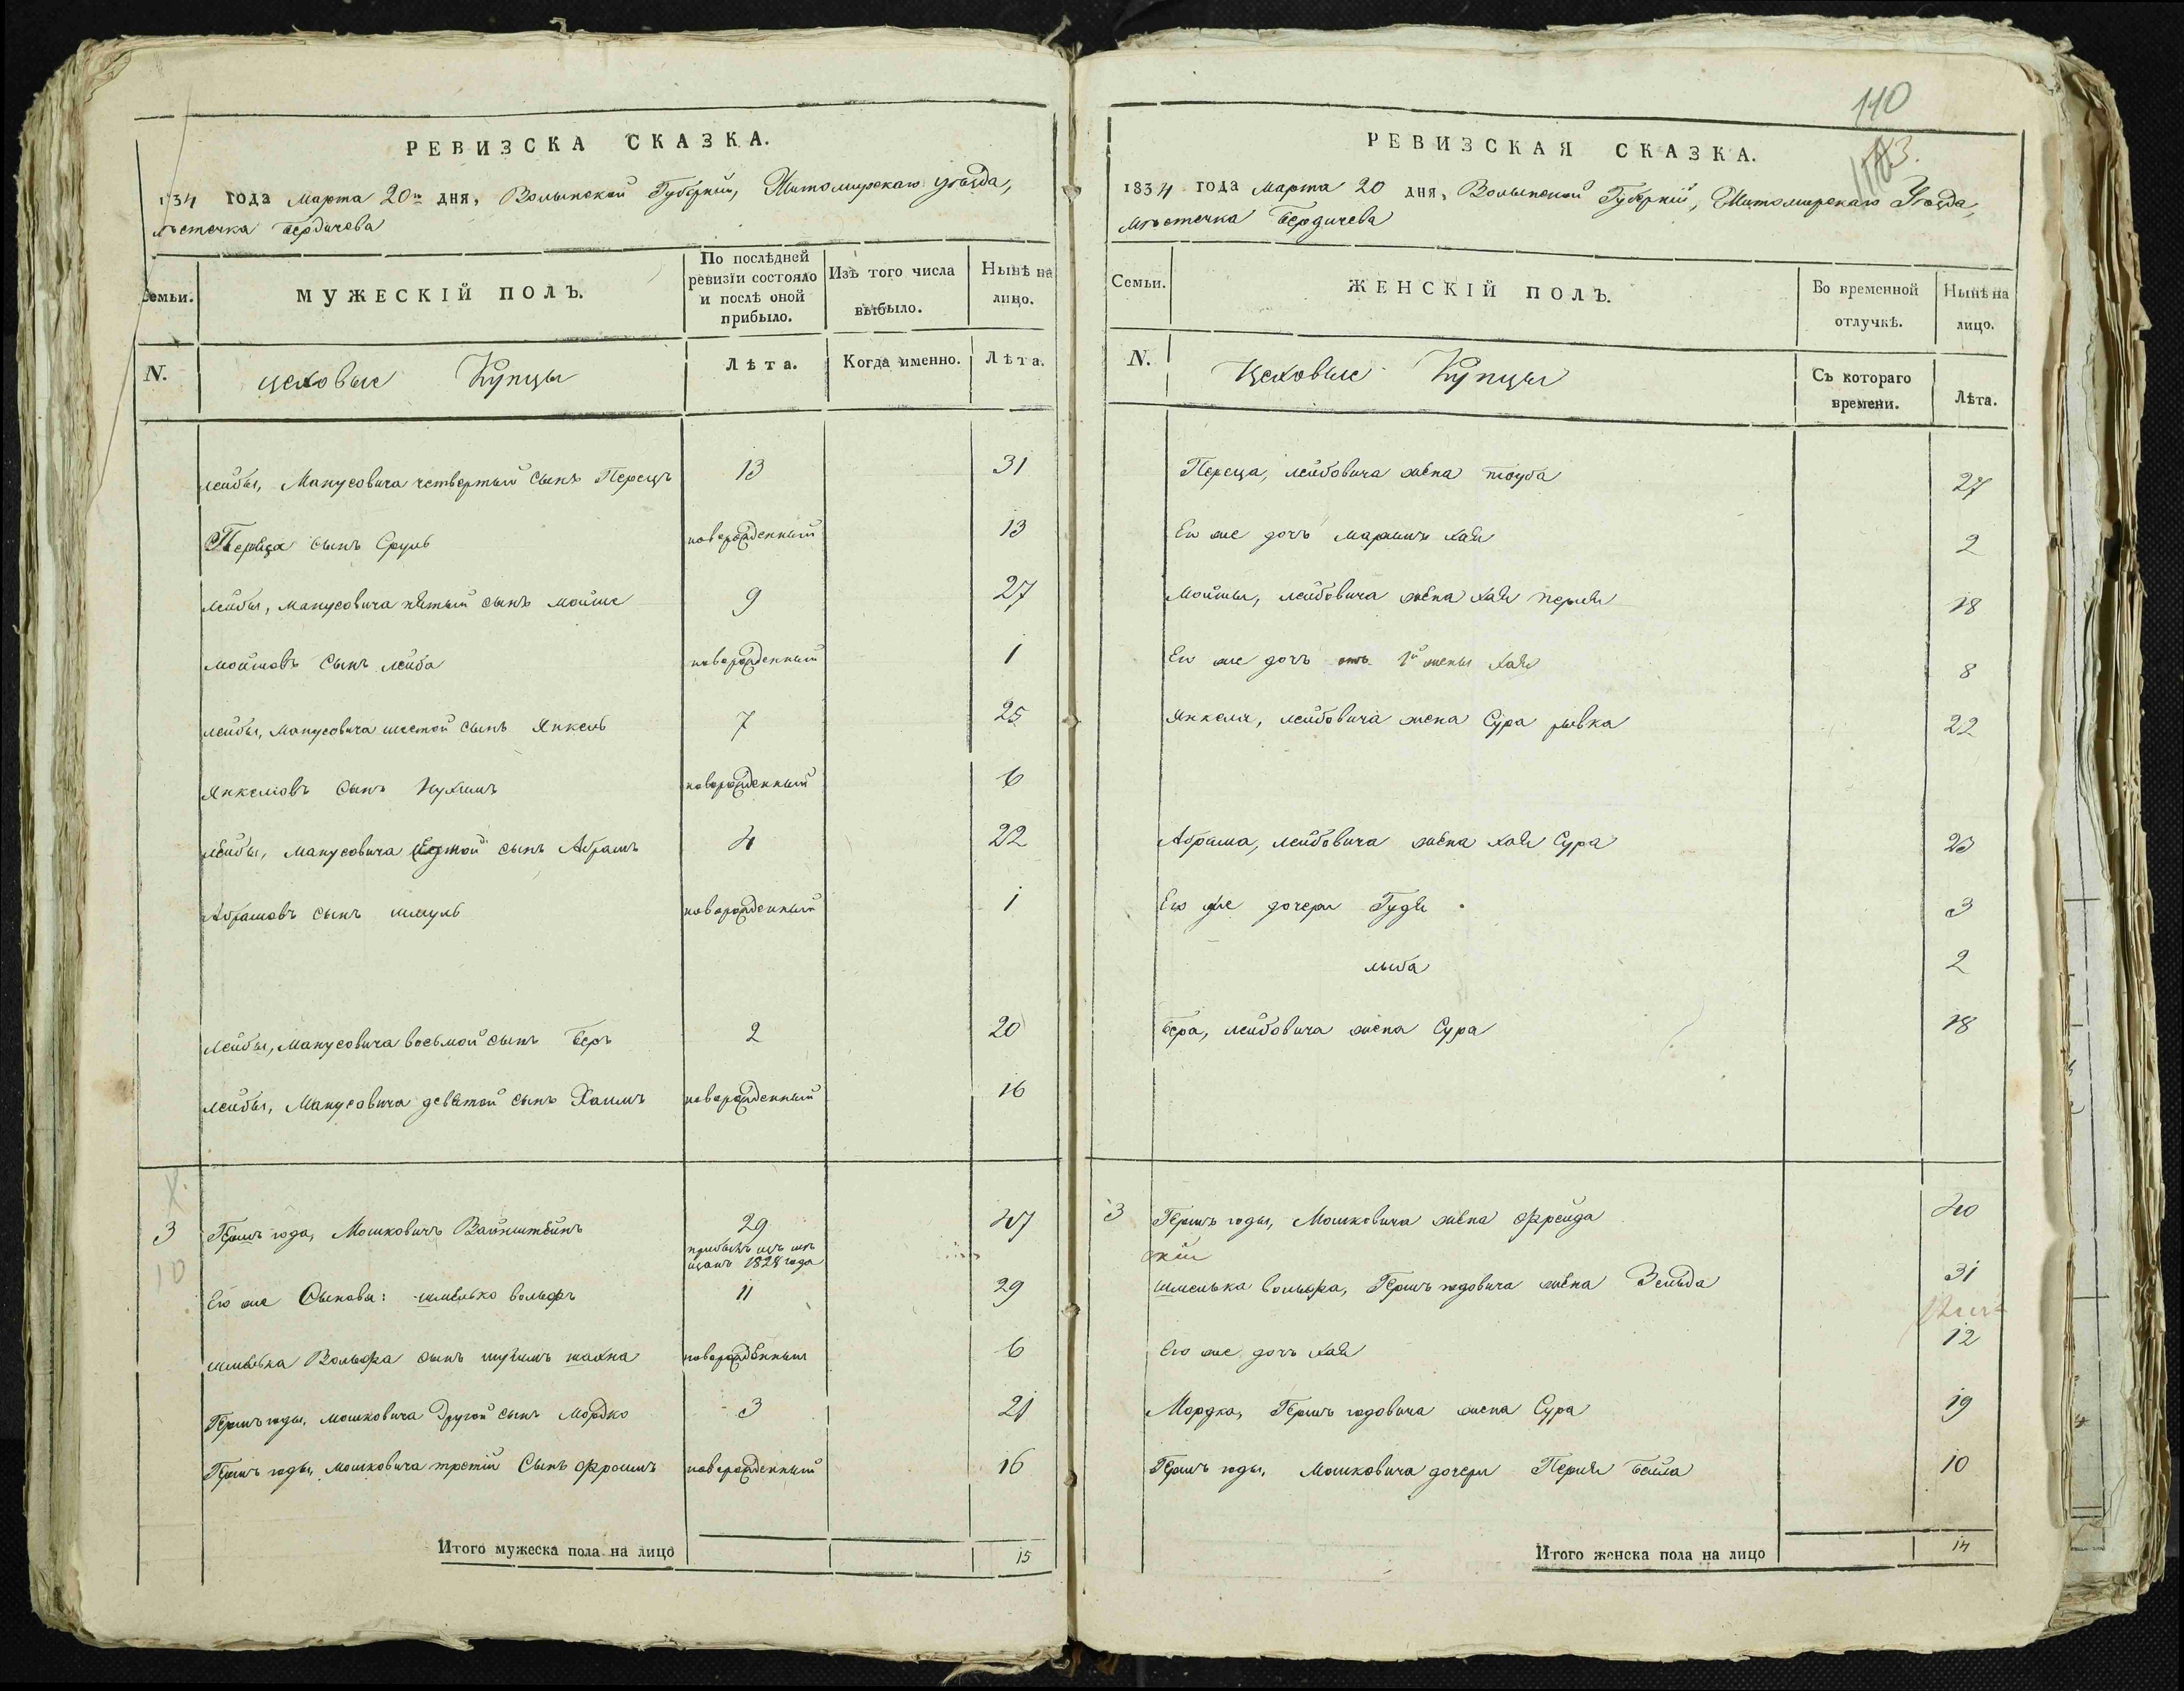 РЕВИЗСКА СКАЗКА.
1834 года Марта 20го дня, Волынской Губерніи, Житомирскаго уѣзда,
мѣстечка Бердичева
Семьи.
МУЖЕСКІЙ ПОЛЪ.
По послѣдней ревизіи состояло и послѣ оной прибыло.
Изъ того числа выбыло.
Нынѣ на лицо.
N.
цеховые Купцы
Лѣта.
Когда именно.
Лѣта.
Лейбы, Манусовича четвертый сынъ Перецъ 13 31
Переца сынъ Сруль новорожденный 13
Лейбы, Манусовича пятый сынъ Мойше 9 27
Мойшовъ сынъ Лейба новорожденный 1
Лейбы, Манусовича шестой сынъ Янкель 7 25
Янкелювъ сынъ Нухимъ новорожденный 6
Лейбы, Манусовича седмой сынъ Абрамъ 4 22
Абрамовъ сынъ Шмуль новорожденный 1
Лейбы, Манусовича восьмой сынъ Беръ 2 20
Лейбы, Манусовича девятой сынъ Хаимъ новорожденный 16
3 Гершъ года, Мошковичъ Вайнштейнъ 29 47
прибылъ изъ мѣ
щанъ 1828 года
10
Его же Сыновья: Шмелько Вольфъ 11 29
Шмелька Вольфа сынъ шахна новорожденный 6
Гершъ годы, Мошковича Другой сынъ Мордко 3 21
Гершъ годы, Мошковича третій Сынъ Фроимъ новорожденный 16
Итого мужеска пола на лицо 15
110
РЕВИЗСКАЯ СКАЗКА.
1834 года Марта 20 дня, Волынской Губерніи, Житомирскаго Уѣзда,
мѣстечка Бердичева
Семьи.
ЖЕНСКІЙ ПОЛЪ.
Во временной отлучкѣ.
Нынѣ на лицо.
N.
Цеховые Купцы
Съ котораго времени.
Лѣта.
Переца, Лейбовича жена тоуба 27
Его же дочь Марьимъ хая 2
Мойшы, Лейбовича жена хая перля 18
Его же дочь отъ 1й жены хая 8
Янкеля, Лейбовича жена Сура рывка 22
Абрама, Лейбовича жена хая Сура 23
Его же дочери Гудя 3
лыба 2
Бера, Лейбовича жена Сура 18
3 Гершъ годы, Мошковича жена Фрейда 40
Шмелька Вольфа, Гершъ годовича жена Зельда 31
Его же дочь хая 12
Мордка, Гершъ годовича жена Сура 19
Гершъ годы, Мошковича дочери Перля Бейла 10
Итого женска пола на лицо 14